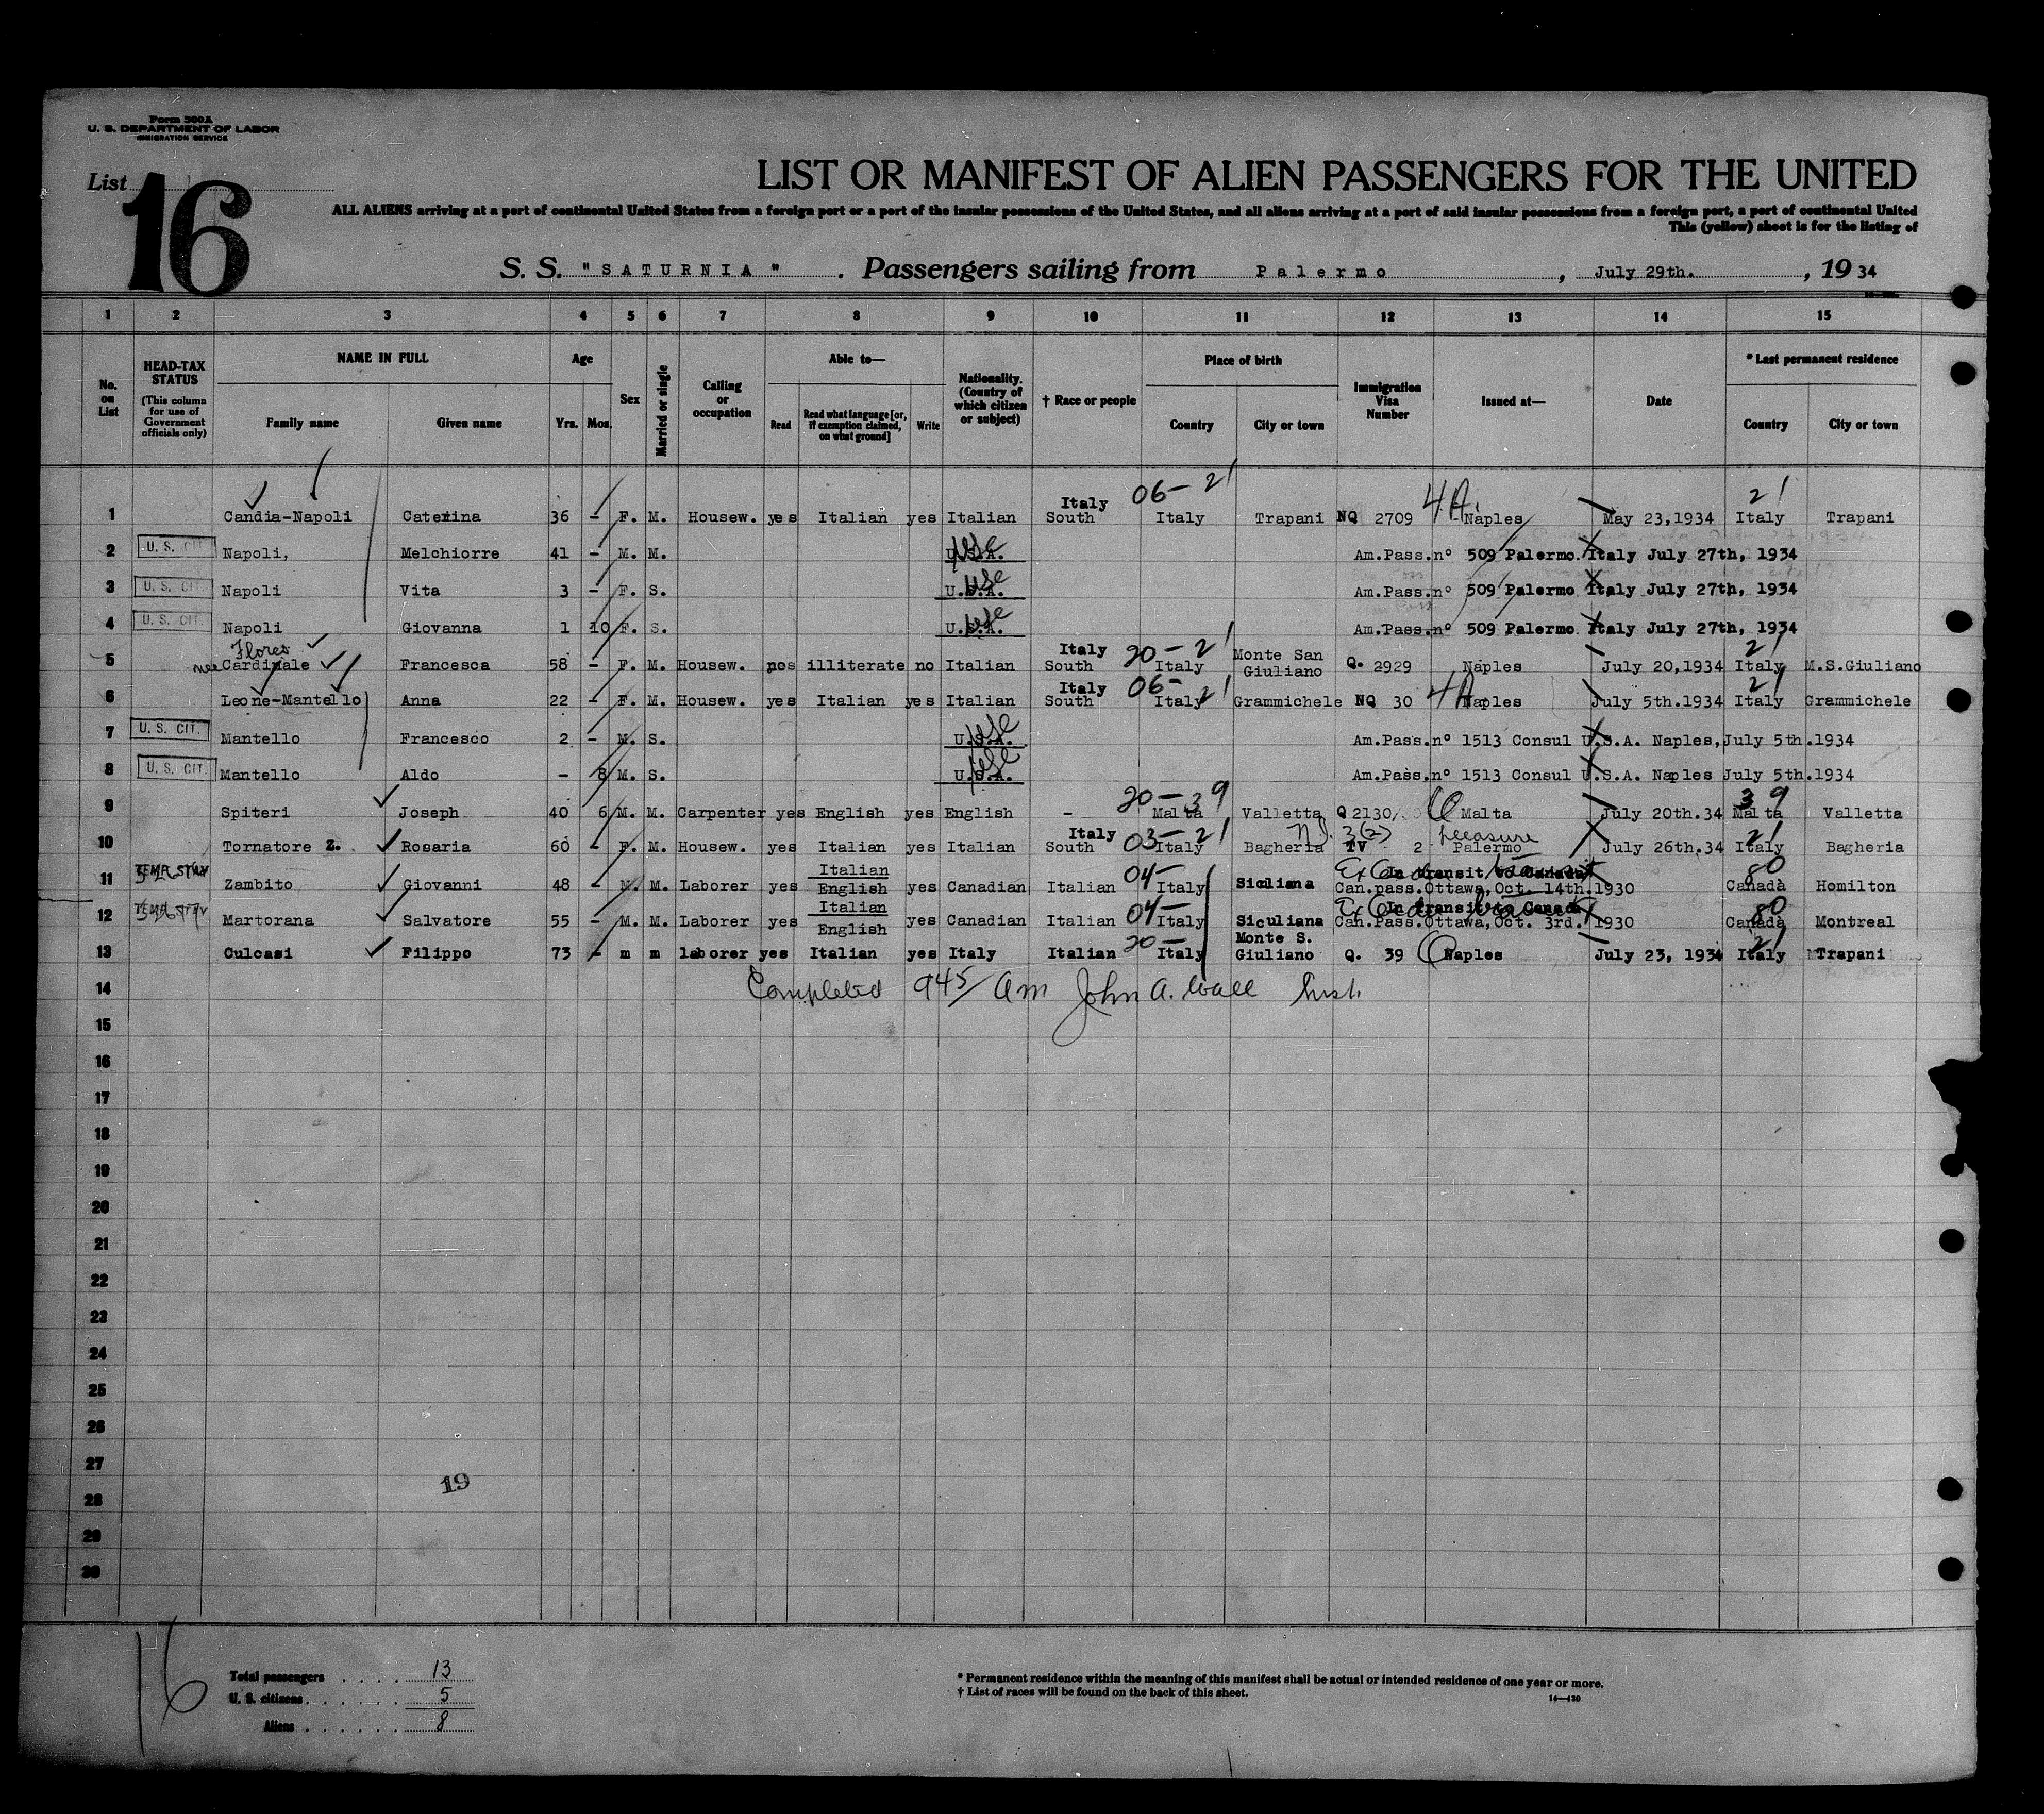 Form 500A
U. S. DEPARTMENT OF LABOR
IMMIGRATION SERVICE
List
16
LIST OR MANIFEST OF ALIEN PASSENGERS FOR THE UNITED
ALL ALIENS arriving at a port of continental United States from a foreign port or a port of the insular possessions of the United States, and all aliens arriving at a port of said insular possessions from a foreign port, a port of continental United
This (yellow) sheet is for the listing of
S. S. "SATURNIA". Passengers sailing from Palermo, July 29th., 1934
1 2 3 4 5 6 7 8 9 10 11 12 13 14 15
No. on List
HEAD-TAX STATUS (This column for use of Government officials only)
NAME IN FULL
Family name Given name
Age
Yrs. Mos.
Sex
Married or single
Calling or occupation
Able to—
Read Read what language [or, if exemption claimed, on what ground] Write
Nationality. (Country of which citizen or subject)
† Race or people
Place of birth
Country City or town
Immigration Visa Number
Issued at—
Date
* Last permanent residence
Country City or town
Italy 06- 21 4A. 21
1 Candia-Napoli Caterina 36 - F. M. Housew. yes Italian yes Italian South Italy Trapani NQ 2709 Naples May 23,1934 Italy Trapani
2 U. S. CIT. Napoli, Melchiorre 41 - M. M. U.S.A. Am.Pass.nº 509 Palermo Italy July 27th, 1934
3 U. S. CIT. Napoli Vita 3 - F. S. U.S.A. Am.Pass.nº 509 Palermo Italy July 27th, 1934
4 U. S. CIT. Napoli Giovanna 1 10 F. S. U.S.A. Am.Pass.nº 509 Palermo Italy July 27th, 1934
Flores Italy 20- 21 Monte San 21
5 nee Cardinale Francesca 58 - F. M. Housew. nos illiterate no Italian South Italy Giuliano Q. 2929 Naples July 20,1934 Italy M.S.Giuliano
Italy 06- 21 4A 21
6 Leone-Mantello Anna 22 - F. M. Housew. yes Italian yes Italian South Italy Grammichele NQ 30 Naples July 5th.1934 Italy Grammichele
7 U. S. CIT. Mantello Francesco 2 - M. S. U.S.A. Am.Pass.nº 1513 Consul U.S.A. Naples, July 5th.1934
8 U. S. CIT. Mantello Aldo - 8 M. S. U.S.A. Am.Pass.nº 1513 Consul U.S.A. Naples July 5th.1934
20- 39 39
9 Spiteri Joseph 40 6 M. M. Carpenter yes English yes English - Malta Valletta Q 2130 Malta July 20th.34 Malta Valletta
Italy 03- 21 3(2) pleasure 21
10 Tornatore Z. Rosaria 60 - F. M. Housew. yes Italian yes Italian South Italy Bagheria TV 2 Palermo July 26th.34 Italy Bagheria
TEMP. STAY Italian 04- In transit to Canada 80
11 Zambito Giovanni 48 - M. M. Laborer yes English yes Canadian Italian Italy Siculiana Can.pass.Ottawa,Oct. 14th.1930 Canada Homilton
TEMP. STAY Italian 04- In transit to Canada 80
12 Martorana Salvatore 55 - M. M. Laborer yes English yes Canadian Italian Italy Siculiana Can.Pass.Ottawa,Oct. 3rd. 1930 Canada Montreal
20- Monte S. 21
13 Culcasi Filippo 73 - m m laborer yes Italian yes Italy Italian Italy Giuliano Q. 39 Naples July 23, 1934 Italy Trapani
14 Completed 945/ am John A. Wall Insp.
15
16
17
18
19
20
21
22
23
24
25
26
27
19
28
29
30
16
Total passengers . . . . 13
U. S. citizens . . . . . . 5
Aliens . . . . . . 8
* Permanent residence within the meaning of this manifest shall be actual or intended residence of one year or more.
† List of races will be found on the back of this sheet.
14—430